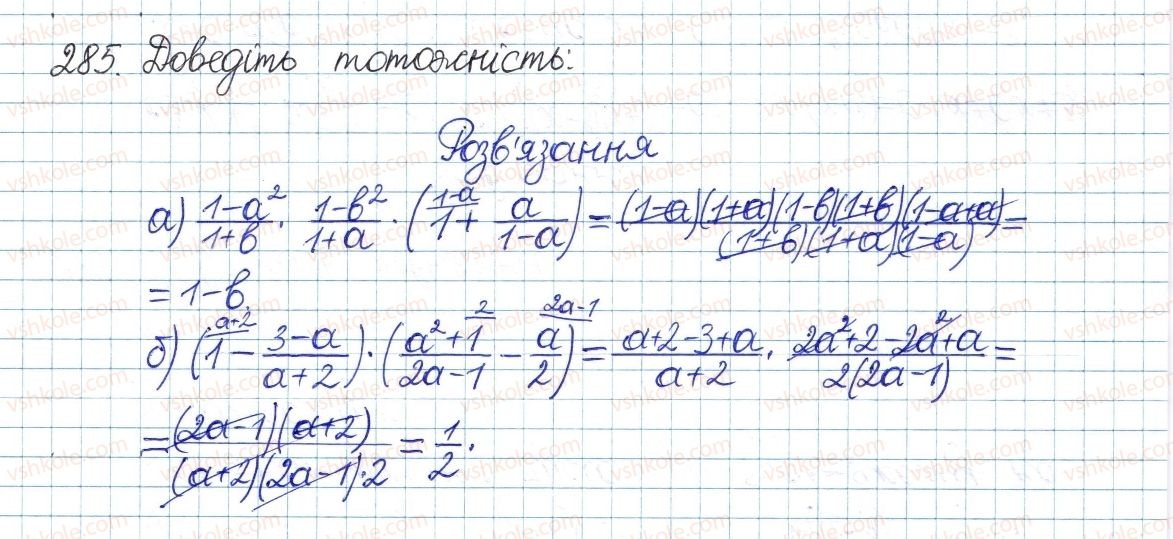 285. Доведіть тотожність:
Розв'язання
а) (1-a²)/(1+b) · (1-b²)/(1+a) · (1 (1-a) + a/(1-a)) = ((1-a)(1+a)(1-b)(1+b)(1-a+a))/((1+b)(1+a)(1-a)) =
= 1-b.
б) (1 (a+2) - (3-a)/(a+2)) · ((a²+1)/(2a-1) (2) - a/2 (2a-1)) = (a+2-3+a)/(a+2) · (2a²+2-2a²+a)/(2(2a-1)) =
= ((2a-1)(a+2))/((a+2)(2a-1)·2) = 1/2.